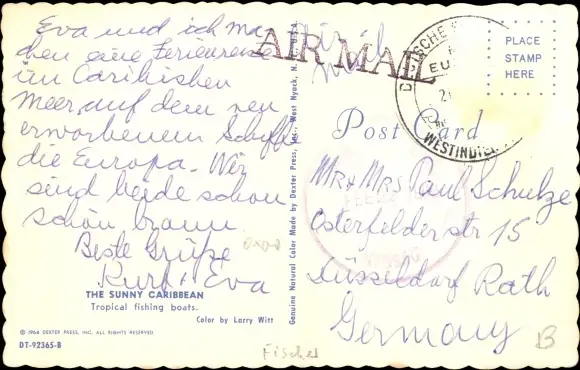 Eva und ich ma
chen eine Ferienreise
im Caribishen
Meer, auf dem neu
erworbenem Schiff
die Europa. Wir
sind beide schon
schön braun
Beste Grüße
Kurt + Eva
THE SUNNY CARIBBEAN
Tropical fishing boats.
Color by Larry Witt
© 1964 DEXTER PRESS, INC. ALL RIGHTS RESERVED
DT-92365-B
Genuine Natural Color Made by Dexter Press, Inc., West Nyack, N.Y.
AIR MAIL
DEUTSCHE
EU
WESTINDIEN
PLACE
STAMP
HERE
Post Card
Mr + Mrs Paul Schulze
Osterfelderstr 15
Düsseldorf Rath
Germany
B
Fischer